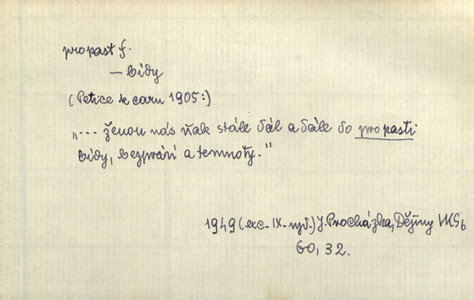 propast f.
– bídy
(Petice k caru 1905:)
„... ženou nás však stále dál a dále do propasti
bídy, bezpráví a temnoty."
1949 (exc. IX. vyd.) J. Procházka, Dějiny VKSb
60, 32.